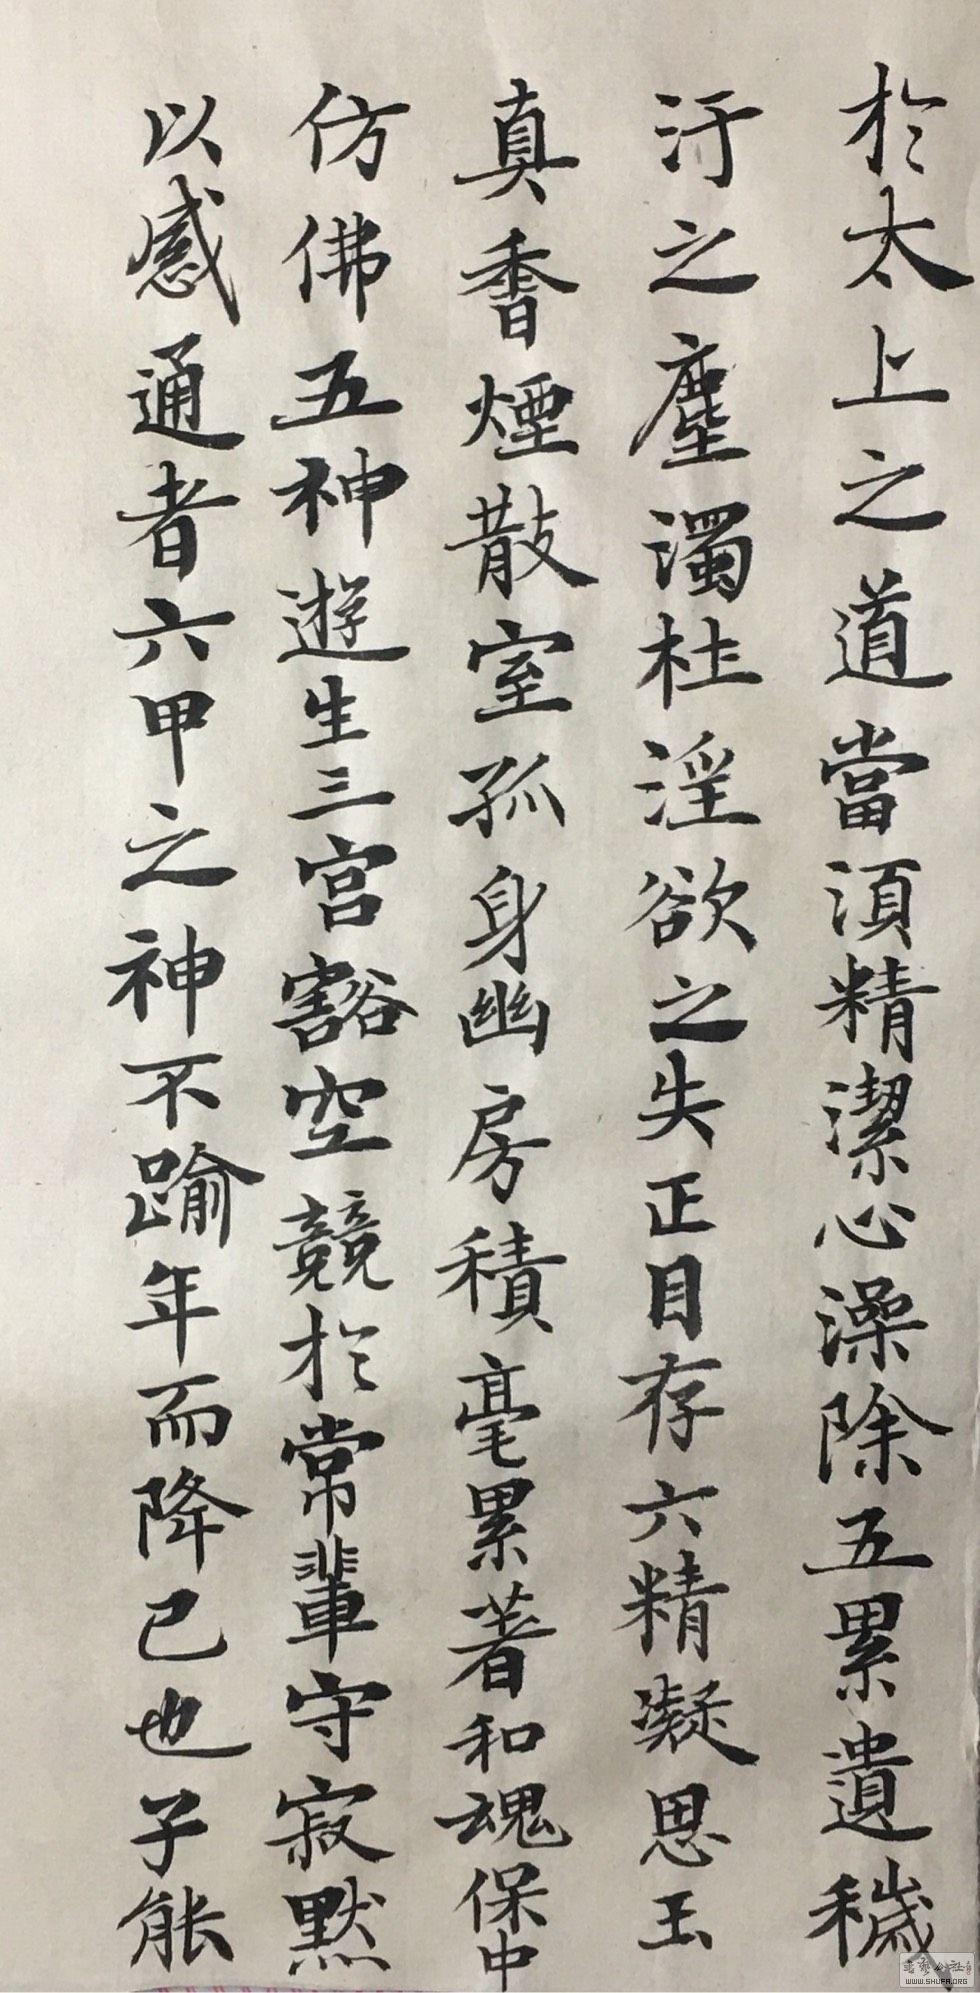 於太上之道當須精潔心澡除五累遺穢
汙之塵濁杜淫欲之失正目存六精凝思玉
真香煙散室孤身幽房積毫累著和魂保中
仿佛五神遊生三宮豁空競於常輩守寂默
以感通者六甲之神不踰年而降已也子能
WWW.SHUFA.ORG